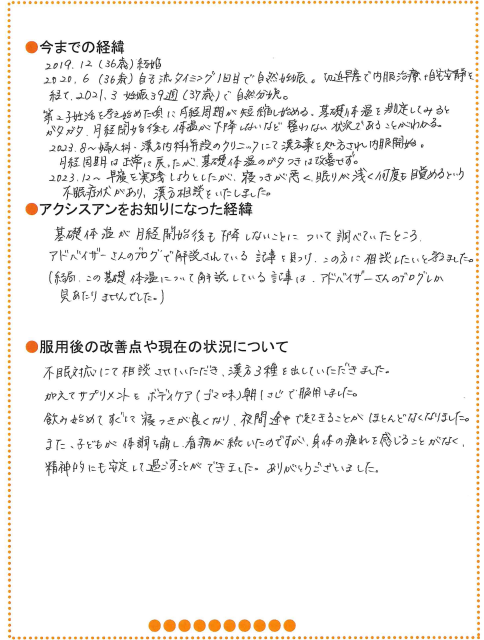 ●今までの経緯
2019.12 (36歳) 結婚
2020.6 (36歳) 自己流タイミング1回目で自然妊娠。切迫早産で内服治療、自宅安静を
経て、2021.3 妊娠39週 (37歳) で自然分娩。
第2子妊活を考え始めた頃に月経周期が短縮し始める。基礎体温を測定してみると
ガタガタ、月経開始後も体温が下降しないなど整わない状況であることがわかる。
2023.8〜婦人科・漢方内科併設のクリニックにて漢方薬を処方され内服開始。
月経周期は正常に戻ったが、基礎体温のガタつきは改善せず。
2023.12〜 早寝を実践しようとしたが、寝つきが悪く、眠りが浅く何度も目覚めるという
不眠症状があり、漢方相談をいたしました。
●アクシスアンをお知りになった経緯
基礎体温が月経開始後も下降しないことについて調べていたところ、
アドバイザーさんのブログで解説されている記事を見つけ、この方に相談したいと考えました。
(結局、この基礎体温について解説している記事は、アドバイザーさんのブログしか
見あたりませんでした。)
●服用後の改善点や現在の状況について
不眠対応にて相談させていただき、漢方3種を出していただきました。
加えてサプリメントをボディケア(ゴマ味)朝1さじで服用しました。
飲み始めてすぐに寝つきが良くなり、夜間途中で起きることがほとんどなくなりました。
また、子どもが体調を崩し、看病が続いたのですが、身体の疲れを感じることがなく、
精神的にも安定して過ごすことができました。ありがとうございました。